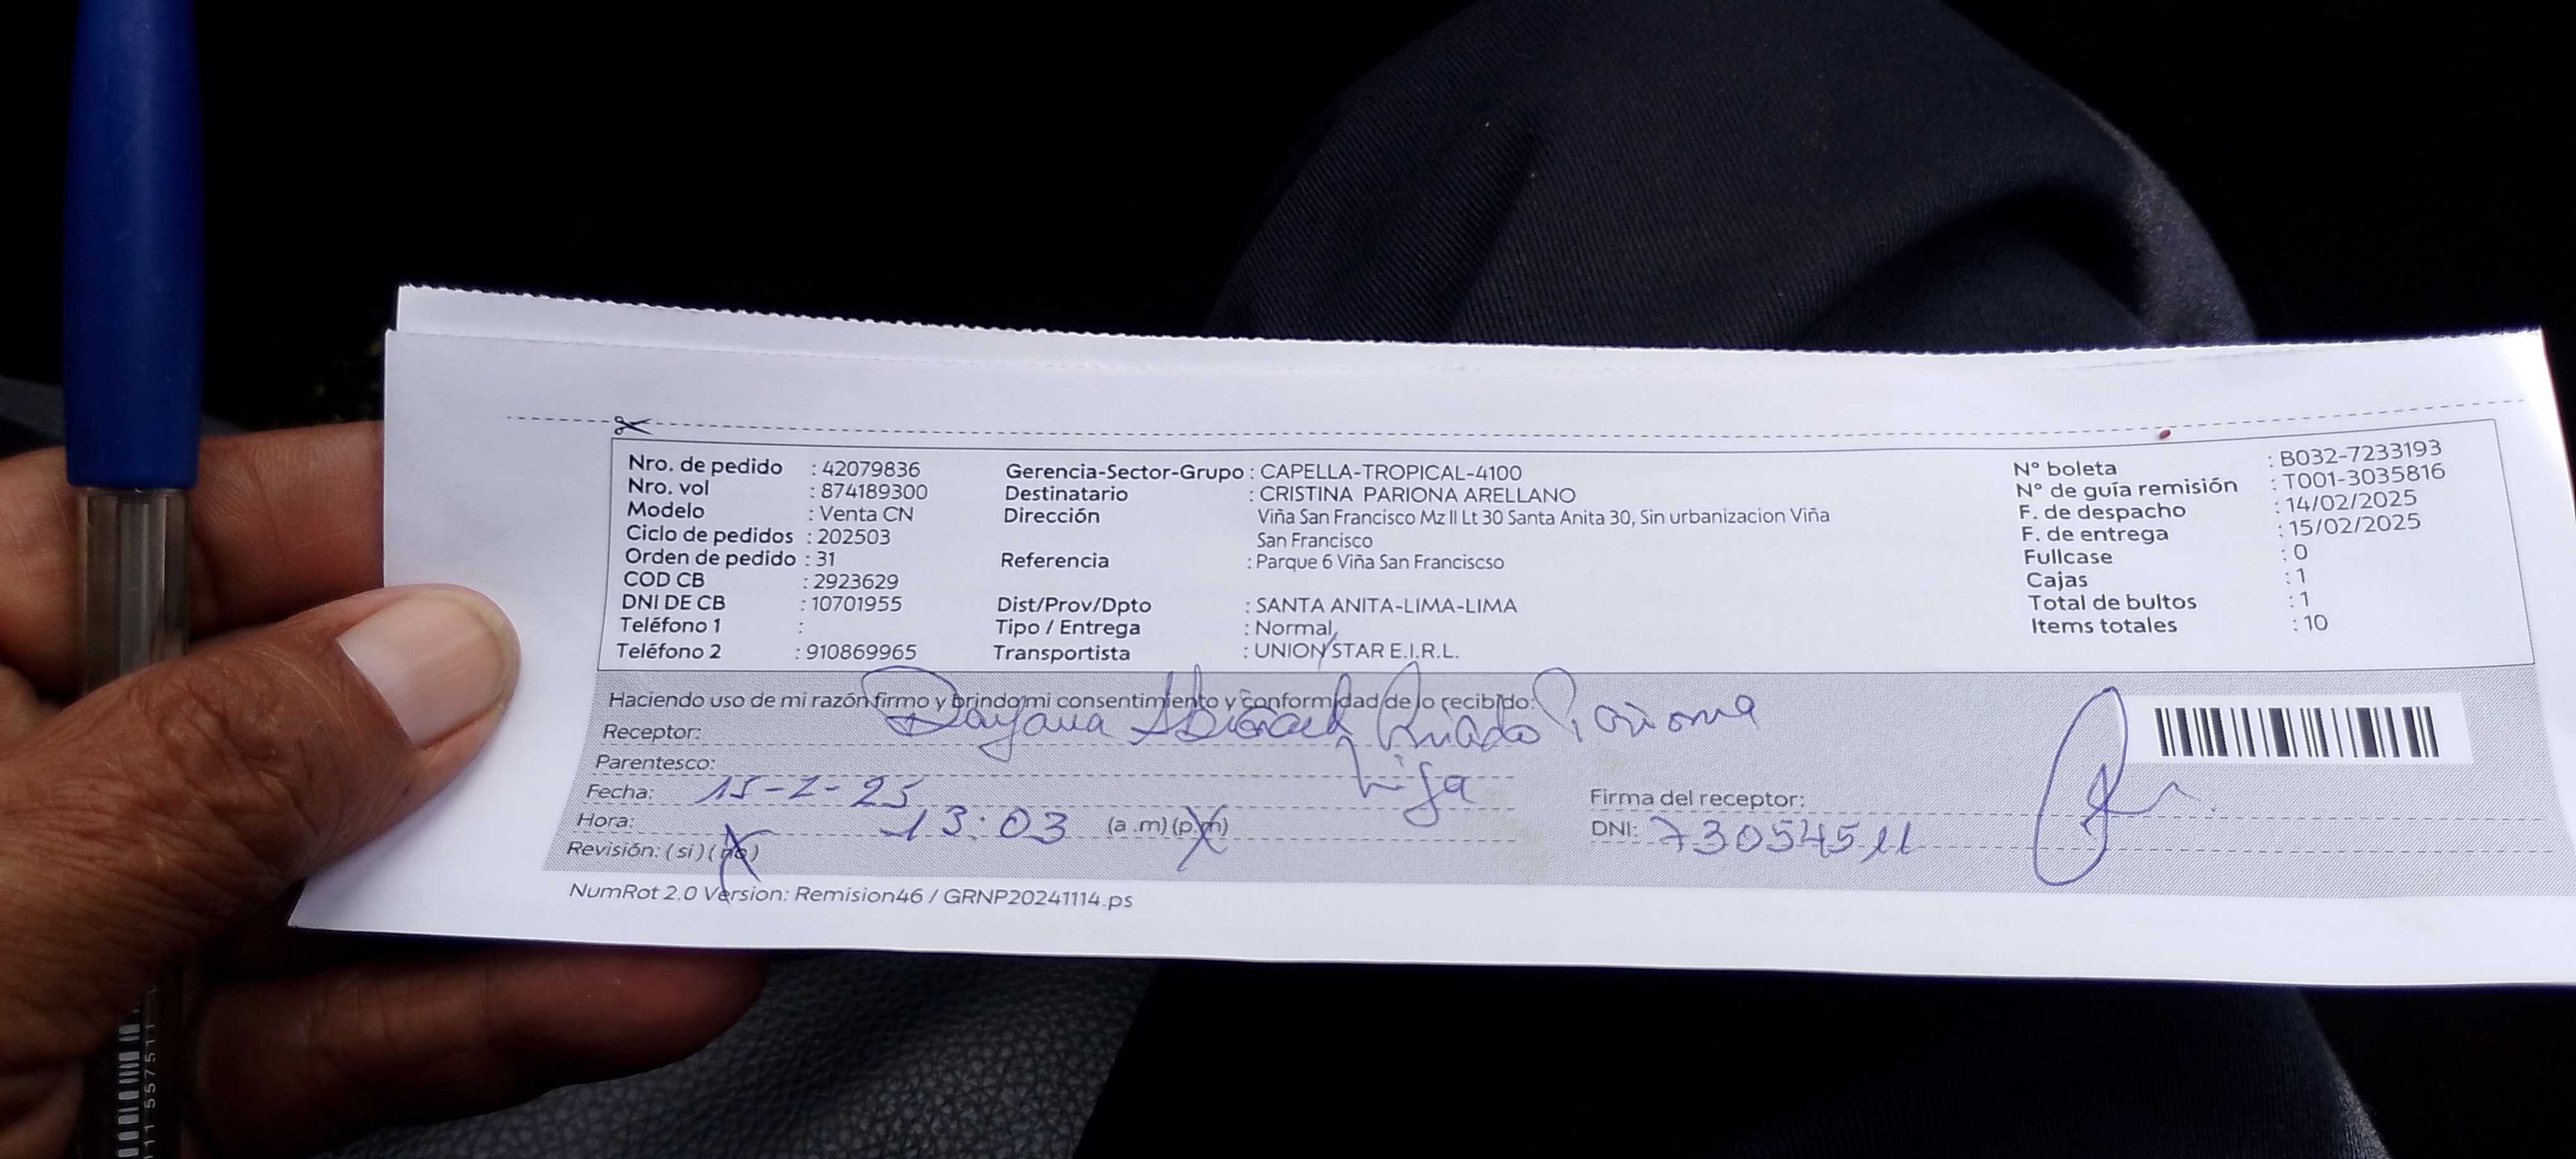 Nro. de pedido : 42079836
Nro. vol : 874189300
Modelo : Venta CN
Ciclo de pedidos : 202503
Orden de pedido : 31
COD CB : 2923629
DNI DE CB : 10701955
Teléfono 1 :
Teléfono 2 : 910869965
Gerencia-Sector-Grupo : CAPELLA-TROPICAL-4100
Destinatario : CRISTINA PARIONA ARELLANO
Dirección : Viña San Francisco Mz II Lt 30 Santa Anita 30, Sin urbanizacion Viña
San Francisco
Referencia : Parque 6 Viña San Franciscso
Dist/Prov/Dpto : SANTA ANITA-LIMA-LIMA
Tipo / Entrega : Normal
Transportista : UNION STAR E.I.R.L.
N° boleta : B032-7233193
N° de guía remisión : T001-3035816
F. de despacho : 14/02/2025
F. de entrega : 15/02/2025
Fullcase : 0
Cajas : 1
Total de bultos : 1
Items totales : 10
Haciendo uso de mi razón firmo y brindo mi consentimiento y conformidad de lo recibido:
Receptor: Dayana Pariona
Parentesco: hija
Fecha: 15-2-25
Hora: 13:03 (a.m) (p.m)
Revisión: (si) (no)
Firma del receptor:
DNI: 73054511
NumRot 2.0 Version: Remision46 / GRNP20241114.ps